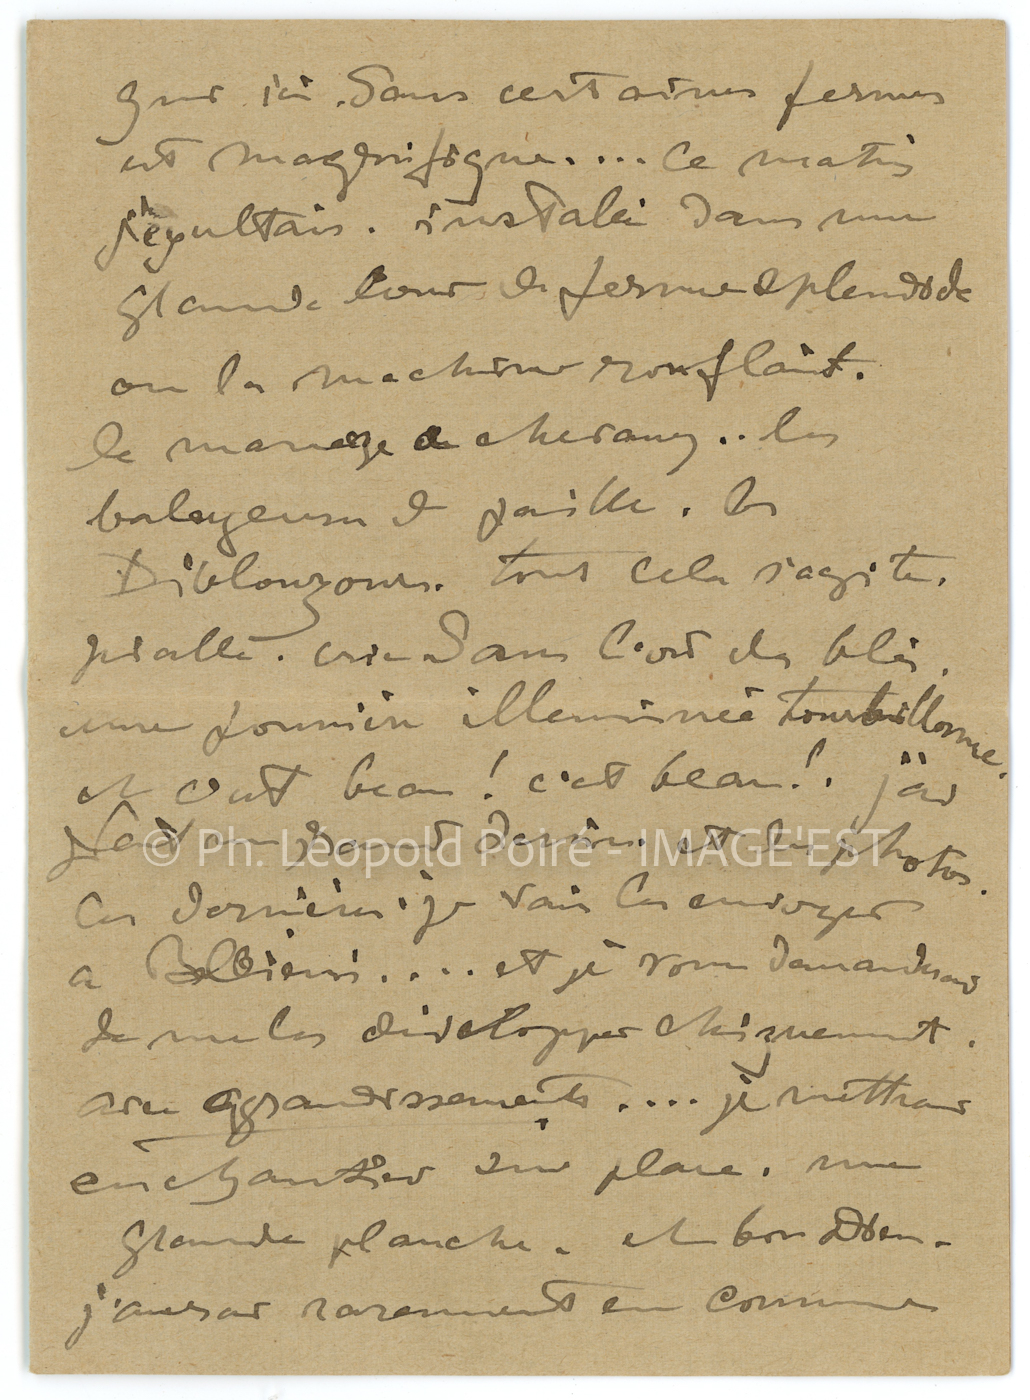 que ici. Dans certaines fermes
est magnifique.... Ce matin
j'exultais. installé dans une
grande cour de ferme splendide
ou la machine ronflait.
le manège a chevaux.. les
balayeuses de paille. les
tout cela s'agite.
piaille. crie Dans l'or des blés.
une poussière illuminée tourbillonne.
et c'est beau! c'est beau!. j'ai
fait un grand dessin. et des photos.
Ces dernières. je vais les envoyer
a .... et je vous demanderai
de me les développer chiquement.
avec agrandissements.... je mettrai
en chantier sur place. une
grande planche. et bon Dieu.
j'aurai rarement eu comme
© Ph. Léopold Poiré - IMAGE'EST